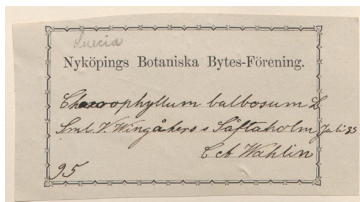 Suecia
Nyköpings Botaniska Bytes-Förening.
Chaerophyllum bulbosum L
Sml. V. Wingåkers s Säftaholm Juli 93
C. Wahlin
95